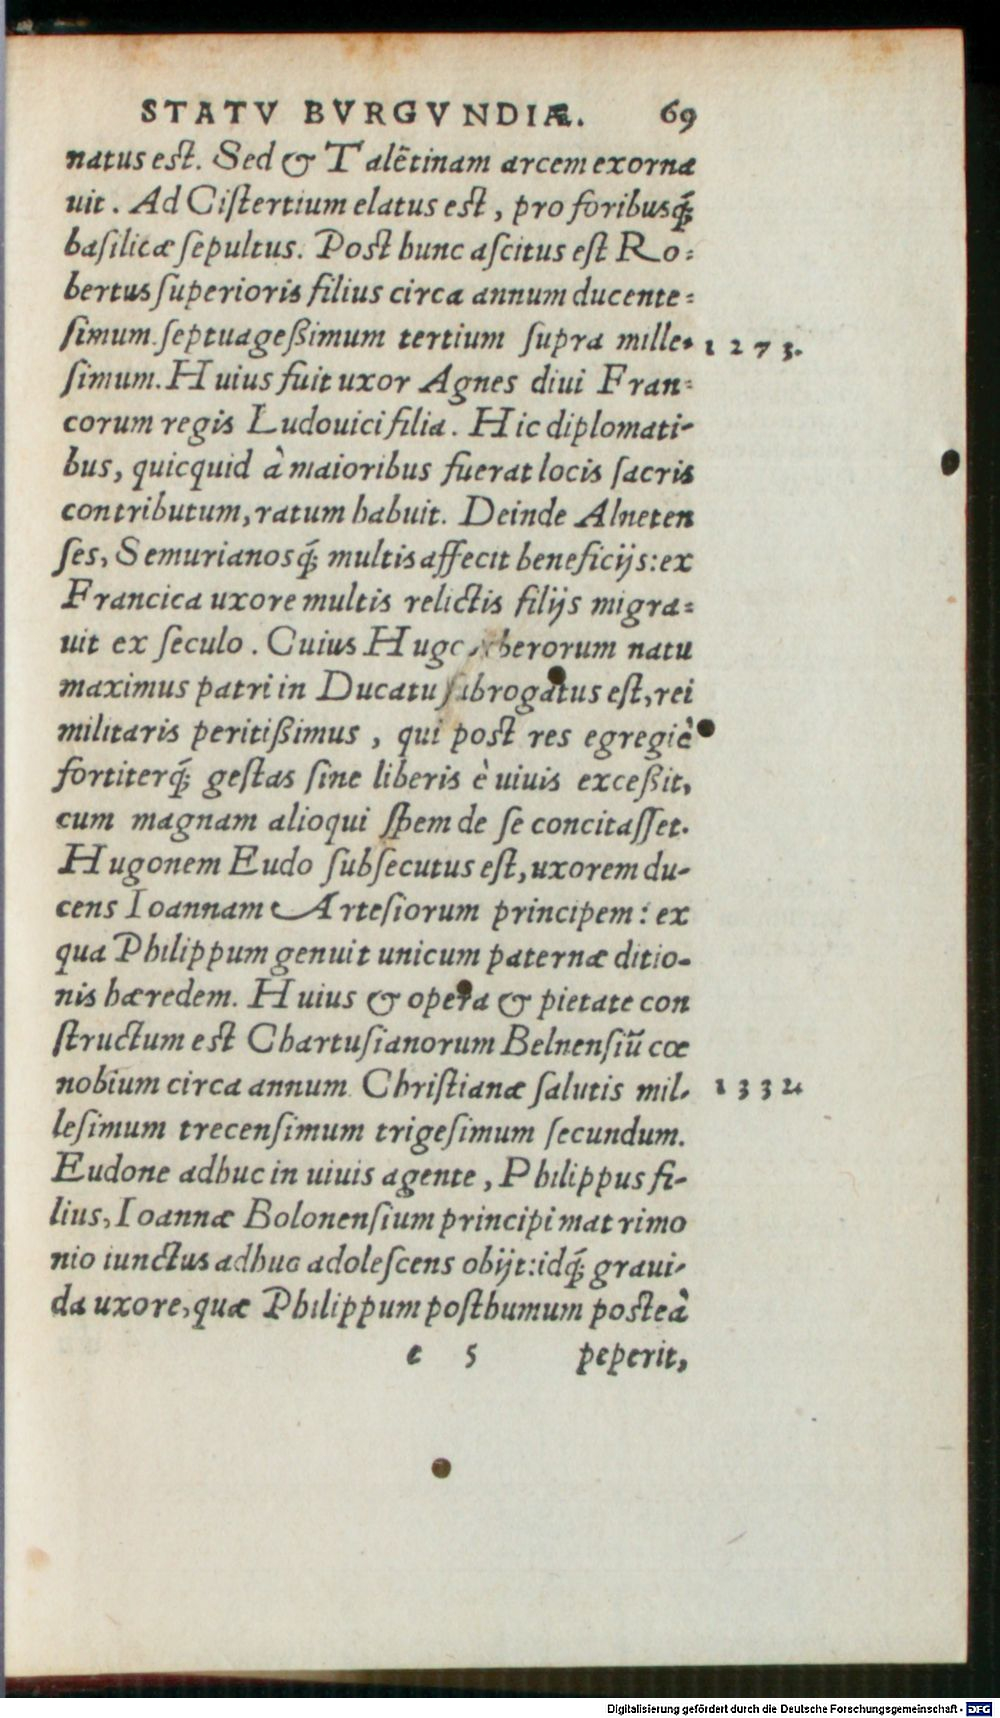 STATV BVRGVNDIÆ. 69
natus est. Sed & Talẽtinam arcem exorna
uit. Ad Cistertium elatus est, pro foribusq́;
basilicæ sepultus. Post hunc ascitus est Ro=
bertus superioris filius circa annum ducente=
simum septuageßimum tertium supra mille- 1273.
simum. Huius fuit uxor Agnes diui Fran=
corum regis Ludouici filia. Hic diplomati-
bus, quicquid à maioribus fuerat locis sacris
contributum, ratum habuit. Deinde Alneten
ses, Semurianosq́; multis affecit beneficijs: ex
Francica uxore multis relictis filijs migra=
uit ex seculo. Cuius Hugo berorum natu
maximus patri in Ducatu subrogatus est, rei
militaris peritißimus, qui post res egregiè
fortiterq́; gestas sine liberis è uiuis exceßit,
cum magnam alioqui spem de se concitasset.
Hugonem Eudo subsecutus est, uxorem du-
cens Ioannam Artesiorum principem: ex
qua Philippum genuit unicum paternæ ditio-
nis hæredem. Huius & opera & pietate con
structum est Chartusianorum Belnensiũ cœ
nobium circa annum Christianæ salutis mil- 1332
lesimum trecensimum trigesimum secundum.
Eudone adhuc in uiuis agente, Philippus fi-
lius, Ioannæ Bolonensium principi matrimo
nio iunctus adhuc adolescens obijt: idq́; graui-
da uxore, quæ Philippum posthumum posteà
e 5 peperit,
Digitalisierung gefördert durch die Deutsche Forschungsgemeinschaft - DFG